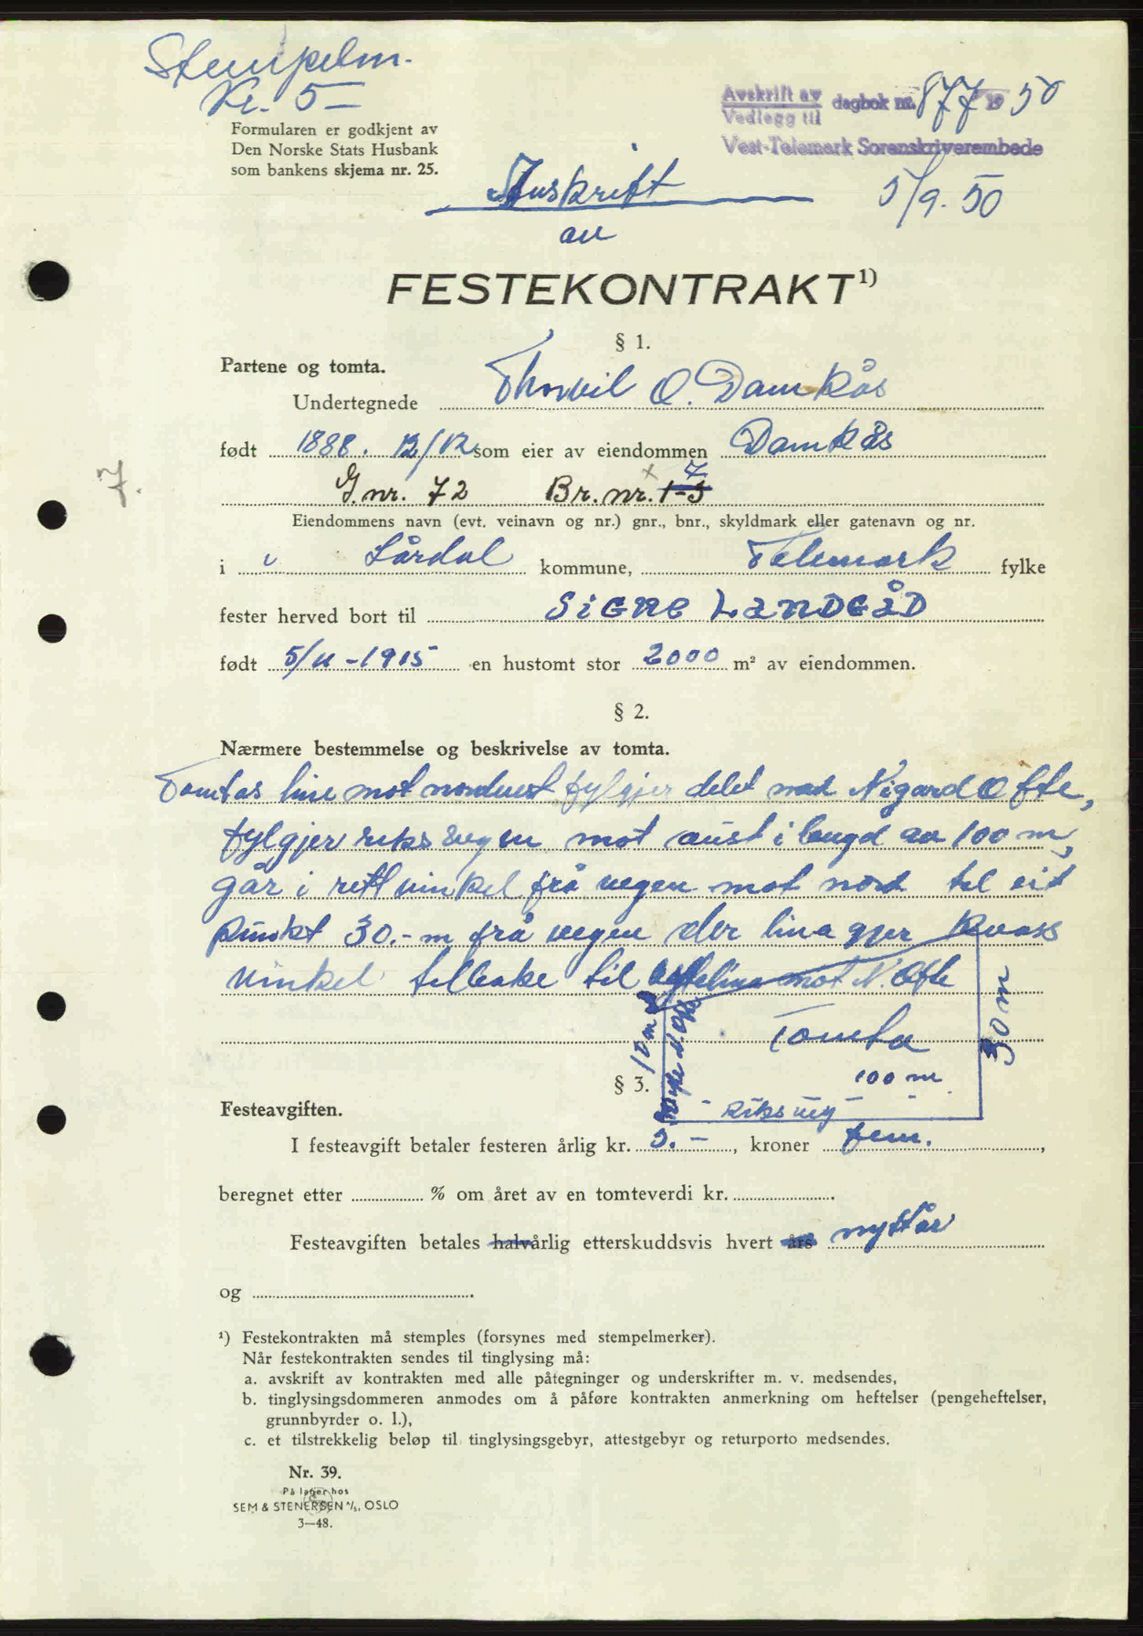 Stempelm.
Kr. 5-
Formularen er godkjent av
Den Norske Stats Husbank
som bankens skjema nr. 25.
Avskrift av
Vedlegg til
dagbok nr. 877 19 50
Vest-Telemark Sorenskriverembede
5/9. 50
Avskrift
av
FESTEKONTRAKT¹)
§ 1.
Partene og tomta.
Undertegnede O. Damkås
født 1888. 12/12 som eier av eiendommen Damkås
7.
G.nr. 72 Br. nr. 1-3 x 7
Eiendommens navn (evt. veinavn og nr.) gnr., bnr., skyldmark eller gatenavn og nr.
i i Lårdal kommune, Telemark fylke
fester herved bort til SIGNE LANDGÅD
født 5/11-1915 en hustomt stor 2000 m² av eiendommen.
§ 2.
Nærmere bestemmelse og beskrivelse av tomta.
Tomtas line mot nordvest fylgjer delet med Nigard Ofte,
fylgjer riksvegen mot aust i lengd av 100 m,
går i rett vinkel frå vegen mot nord til eit
punkt 30.-m frå vegen der lina gjer kvass
vinkel tilbake til mot N. Ofte
10 m
Tomta
30 m
100 m
Riksveg
§ 3.
Festeavgiften.
I festeavgift betaler festeren årlig kr. 5.-, kroner fem.,
beregnet etter % om året av en tomteverdi kr.
Festeavgiften betales halvårlig etterskuddsvis hvert års nyttår
og
¹) Festekontrakten må stemples (forsynes med stempelmerker).
Når festekontrakten sendes til tinglysing må:
a. avskrift av kontrakten med alle påtegninger og underskrifter m. v. medsendes,
b. tinglysingsdommeren anmodes om å påføre kontrakten anmerkning om heftelser (pengeheftelser,
grunnbyrder o. l.),
c. et tilstrekkelig beløp til tinglysingsgebyr, attestgebyr og returporto medsendes.
Nr. 39.
På lager hos
SEM & STENERSEN A/S, OSLO
3—48.